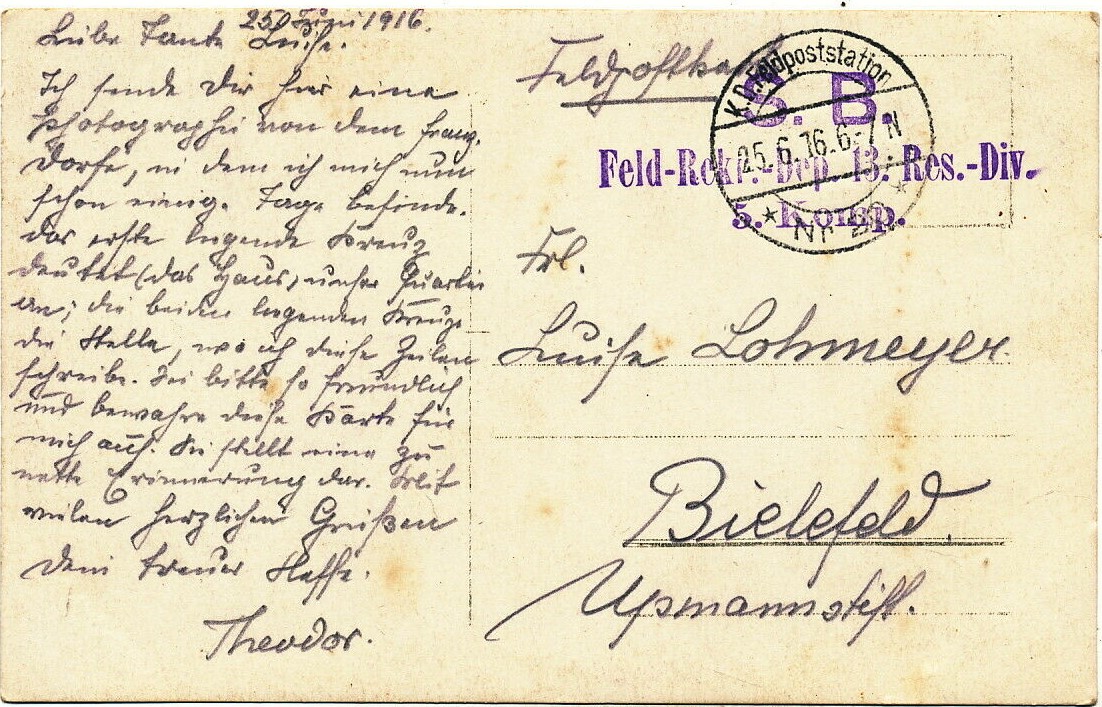 25. Juni 1916.
Liebe Tante Luise.
Ich sende Dir hier eine
Photographie von dem franz.
Dorfe, in dem ich mich nun
schon einig. Tage befinde.
Das erste liegende Kreuz
deutet (das Haus) unser Quartier
an; die beiden liegenden Kreuze
die Stelle, wo ich diese Zeilen
schreibe. Sei bitte so freundlich
und bewahre diese Karte für
mich auf. Sie stellt eine zu
nette Erinnerung dar. Mit
vielen herzlichen Grüßen
Dein treuer Neffe.
Theodor.
Feldpostkarte
K.D. Feldpoststation
25.6.16.6-7 N
* Nr *
S. B.
Feld-Rekr.-Dep. 13. Res.-Div.
5. Komp.
Frl.
Luise Lohmeyer.
Bielefeld.
Upmannstift.